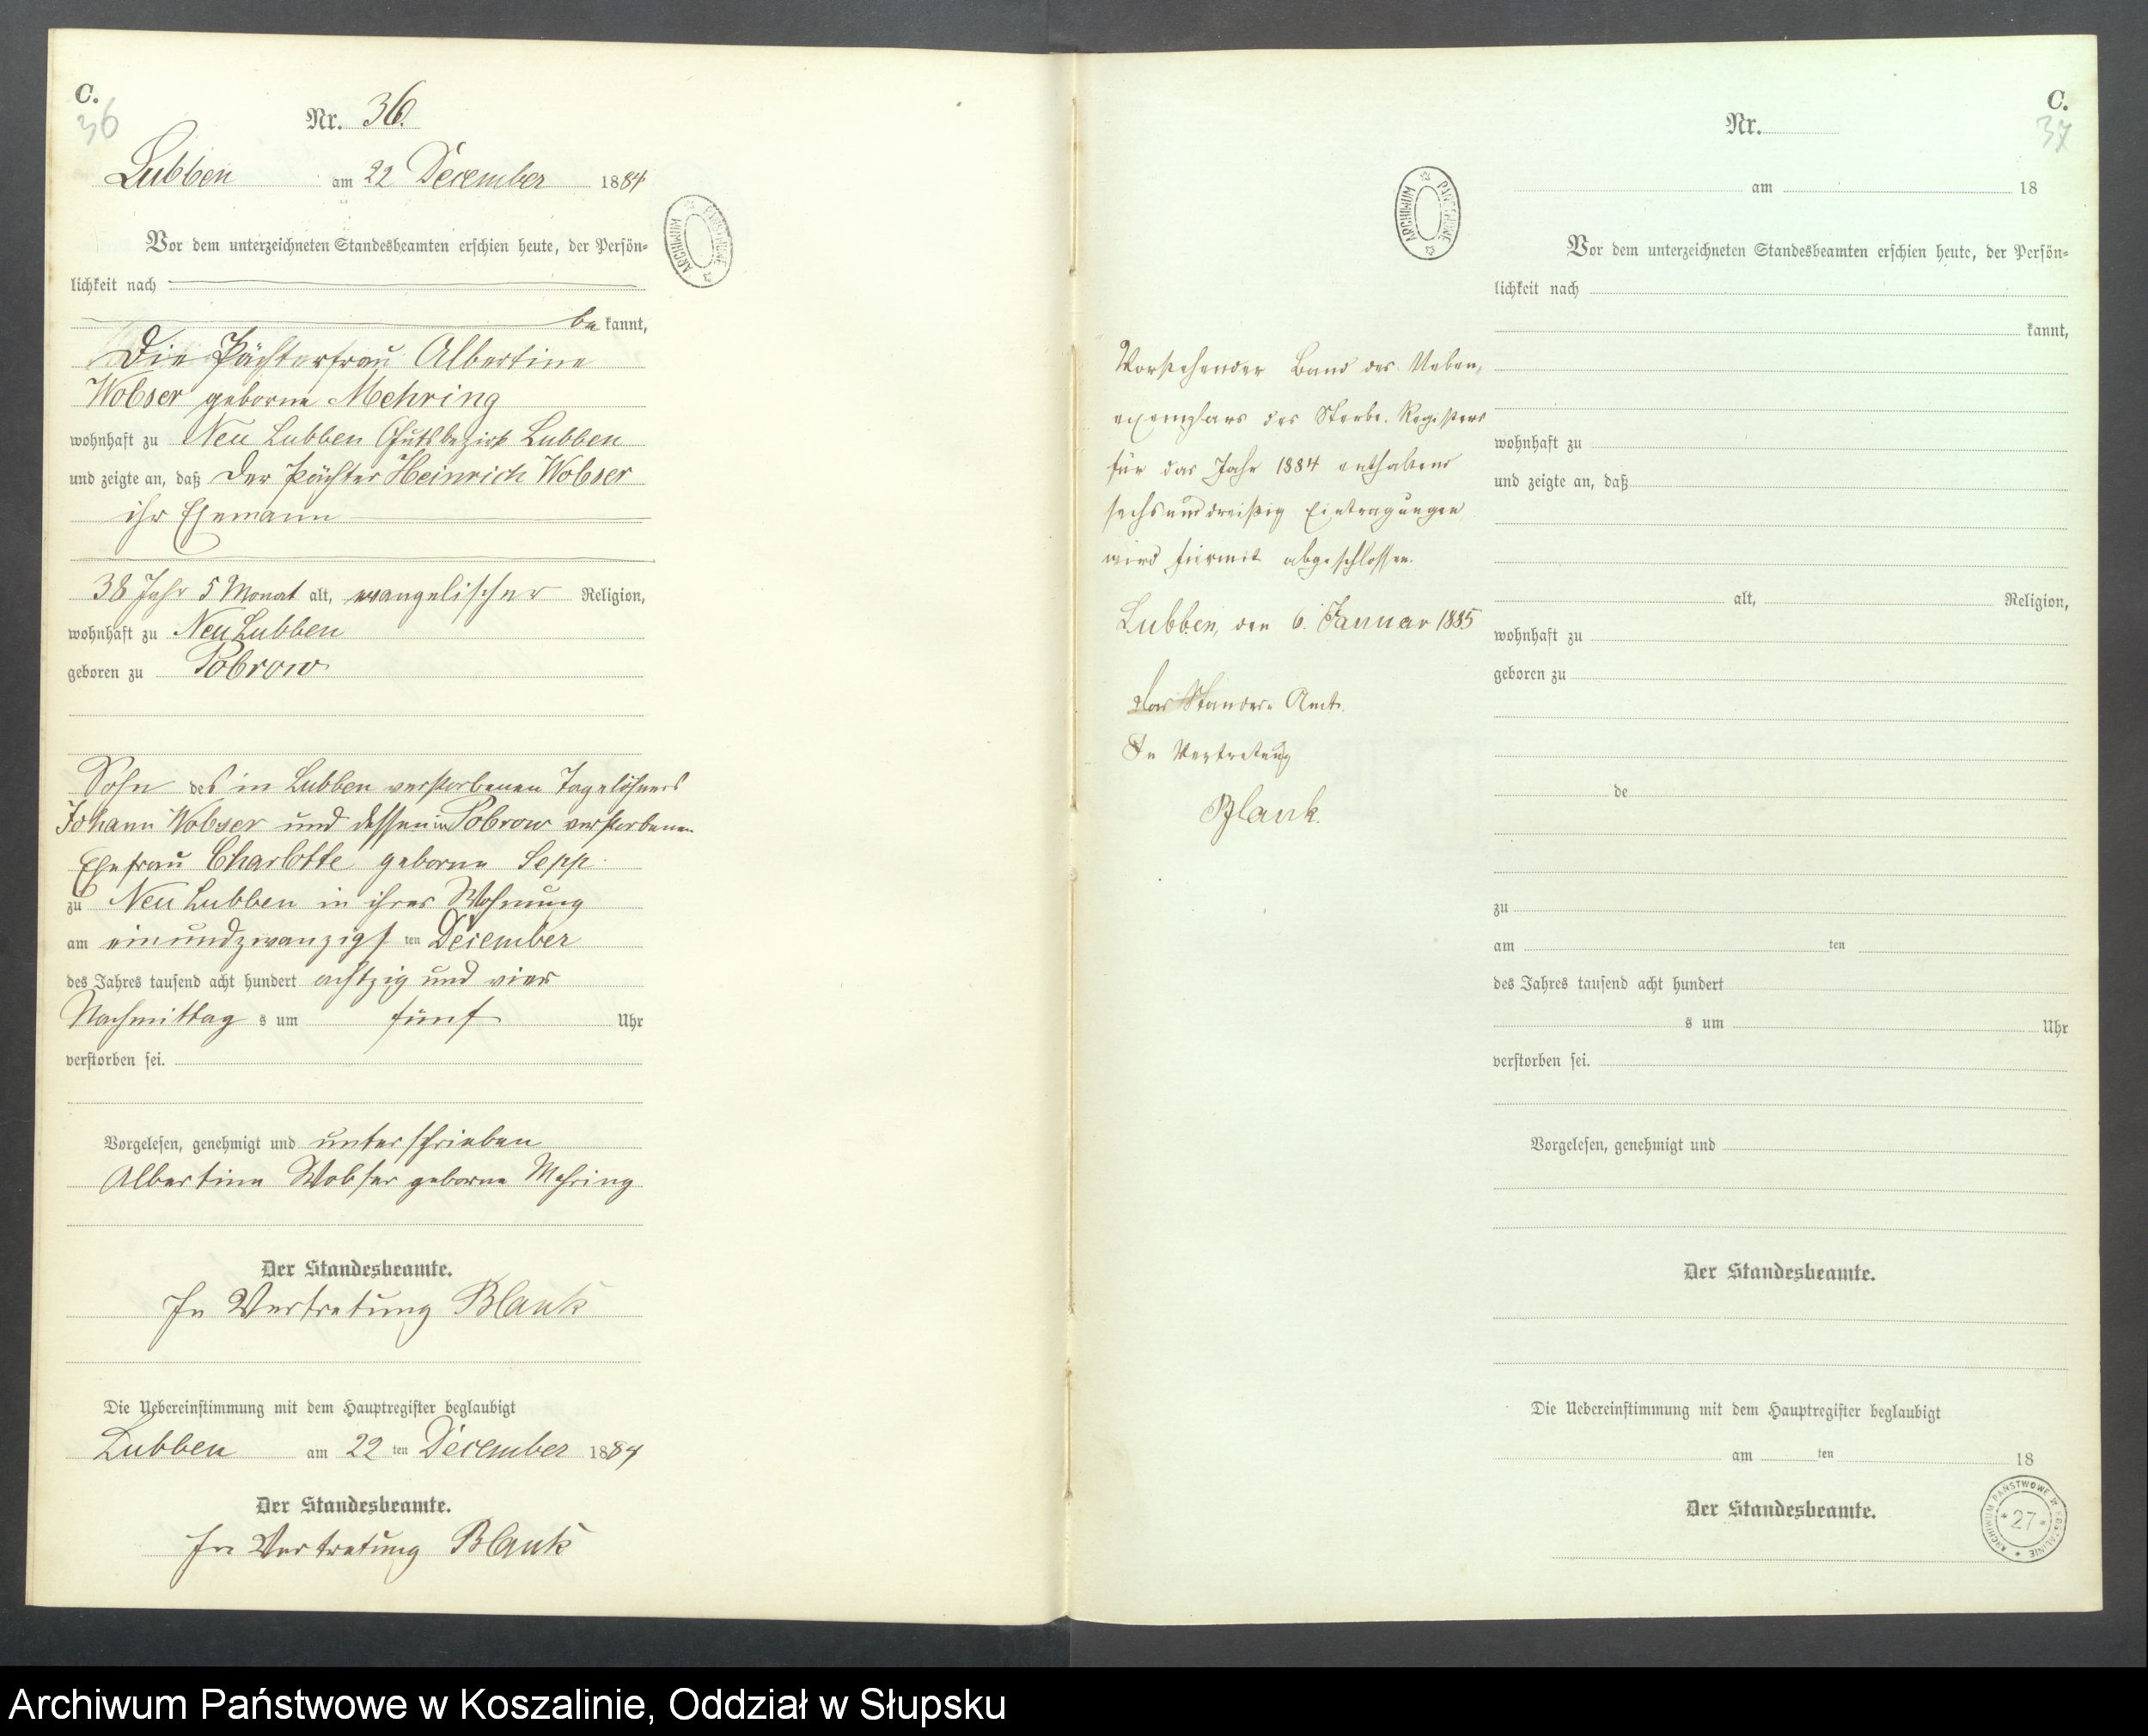 C.
36
Nr. 36.
Lubben am 22 December 1884
Vor dem unterzeichneten Standesbeamten erschien heute, der Persön-
lichkeit nach
be kannt,
Die Pächterfrau Albertine
Wobser geborne Mehring
wohnhaft zu Neu Lubben Gutsbezirk Lubben
und zeigte an, daß der Pächter Heinrich Wobser
ihr Ehemann
38 Jahr 5 Monat alt, evangelischer Religion,
wohnhaft zu Neu Lubben
geboren zu Pobrow
Sohn des in Lubben verstorbenen Tagelöhners
Johann Wobser und dessen in Pobrow verstorbenen
Ehefrau Charlotte geborne Sepp
zu Neu Lubben in ihrer Wohnung
am einundzwanzigs ten December
des Jahres tausend acht hundert achtzig und vier
Nachmittag s um fünf Uhr
verstorben sei.
Vorgelesen, genehmigt und unterschrieben
Albertine Wobser geborne Mehring
Der Standesbeamte.
In Vertretung Blank
Die Uebereinstimmung mit dem Hauptregister beglaubigt
Lubben am 22 ten December 1884
Der Standesbeamte.
In Vertretung Blank
ARCHIWUM PAŃSTWOWE
ARCHIWUM PAŃSTWOWE
Vorstehender Band des Neben-
exemplars des Sterbe-Registers
für das Jahr 1884 enthaltend
sechsunddreißig Eintragungen
wird hiermit abgeschlossen.
Lubben, den 6. Januar 1885
Das Standes-Amt.
In Vertretung
Blank.
C.
37
Nr.
am 18
Vor dem unterzeichneten Standesbeamten erschien heute, der Persön-
lichkeit nach
kannt,
wohnhaft zu
und zeigte an, daß
alt, Religion,
wohnhaft zu
geboren zu
de
zu
am ten
des Jahres tausend acht hundert
s um Uhr
verstorben sei.
Vorgelesen, genehmigt und
Der Standesbeamte.
Die Uebereinstimmung mit dem Hauptregister beglaubigt
am ten 18
Der Standesbeamte.
ARCHIWUM PAŃSTWOWE W KOSZALINIE
* 27 *
Archiwum Państwowe w Koszalinie, Oddział w Słupsku